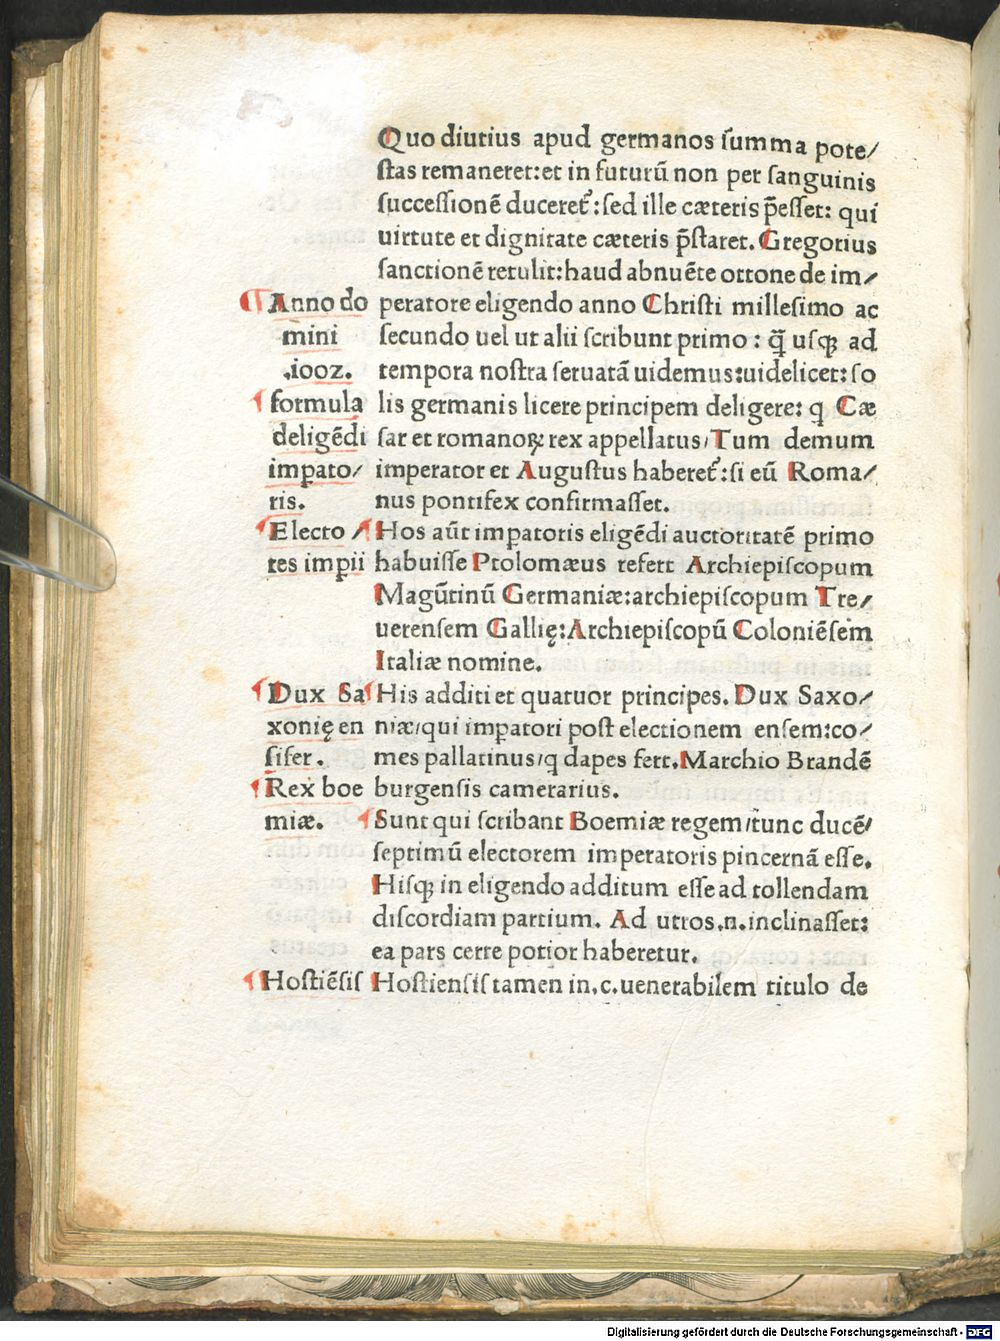 Quo diutius apud germanos summa pote/
stas remaneret:et in futurū non per sanguinis
successionē duceret᷑:sed ille cæteris p̄esset: qui
uirtute et dignitate cæteris p̄staret. Gregorius
sanctionē retulit:haud abnuēte ottone de im/
peratore eligendo anno Christi millesimo ac
secundo uel ut alii scribunt primo : q̄ usqꝫ ad
tempora nostra seruatā uidemus:uidelicet: so
lis germanis licere principem deligere: q Cæ
sar et romanoꝝ rex appellatus/Tum demum
imperator et Augustus haberet᷑:si eū Roma/
nus pontifex confirmasset.
Hos aūt impatoris eligēdi auctoritatē primo
habuisse Ptolomæus refert Archiepiscopum
Magūtinū Germaniæ:archiepiscopum Tre/
uerensem Gallię:Archiepiscopū Coloniēsem
Italiæ nomine.
His additi et quatuor principes. Dux Saxo/
niæ/qui impatori post electionem ensem:co/
mes pallatinus/q dapes fert.Marchio Brandē
burgensis camerarius.
Sunt qui scribant Boemiæ regem/tunc ducē/
septimū electorem imperatoris pincernā esse.
Hisqꝫ in eligendo additum esse ad tollendam
discordiam partium. Ad utros.n.inclinasset:
ea pars certe potior haberetur.
Hostiensis tamen in.c.uenerabilem titulo de
¶Anno do
mini
.1002.
¶formula
deligēdi
impato/
ris.
¶Electo/
res impii
¶Dux Sa
xonię en
sifer.
¶Rex boe
miæ.
¶Hostiēsis
Digitalisierung gefördert durch die Deutsche Forschungsgemeinschaft - DFG